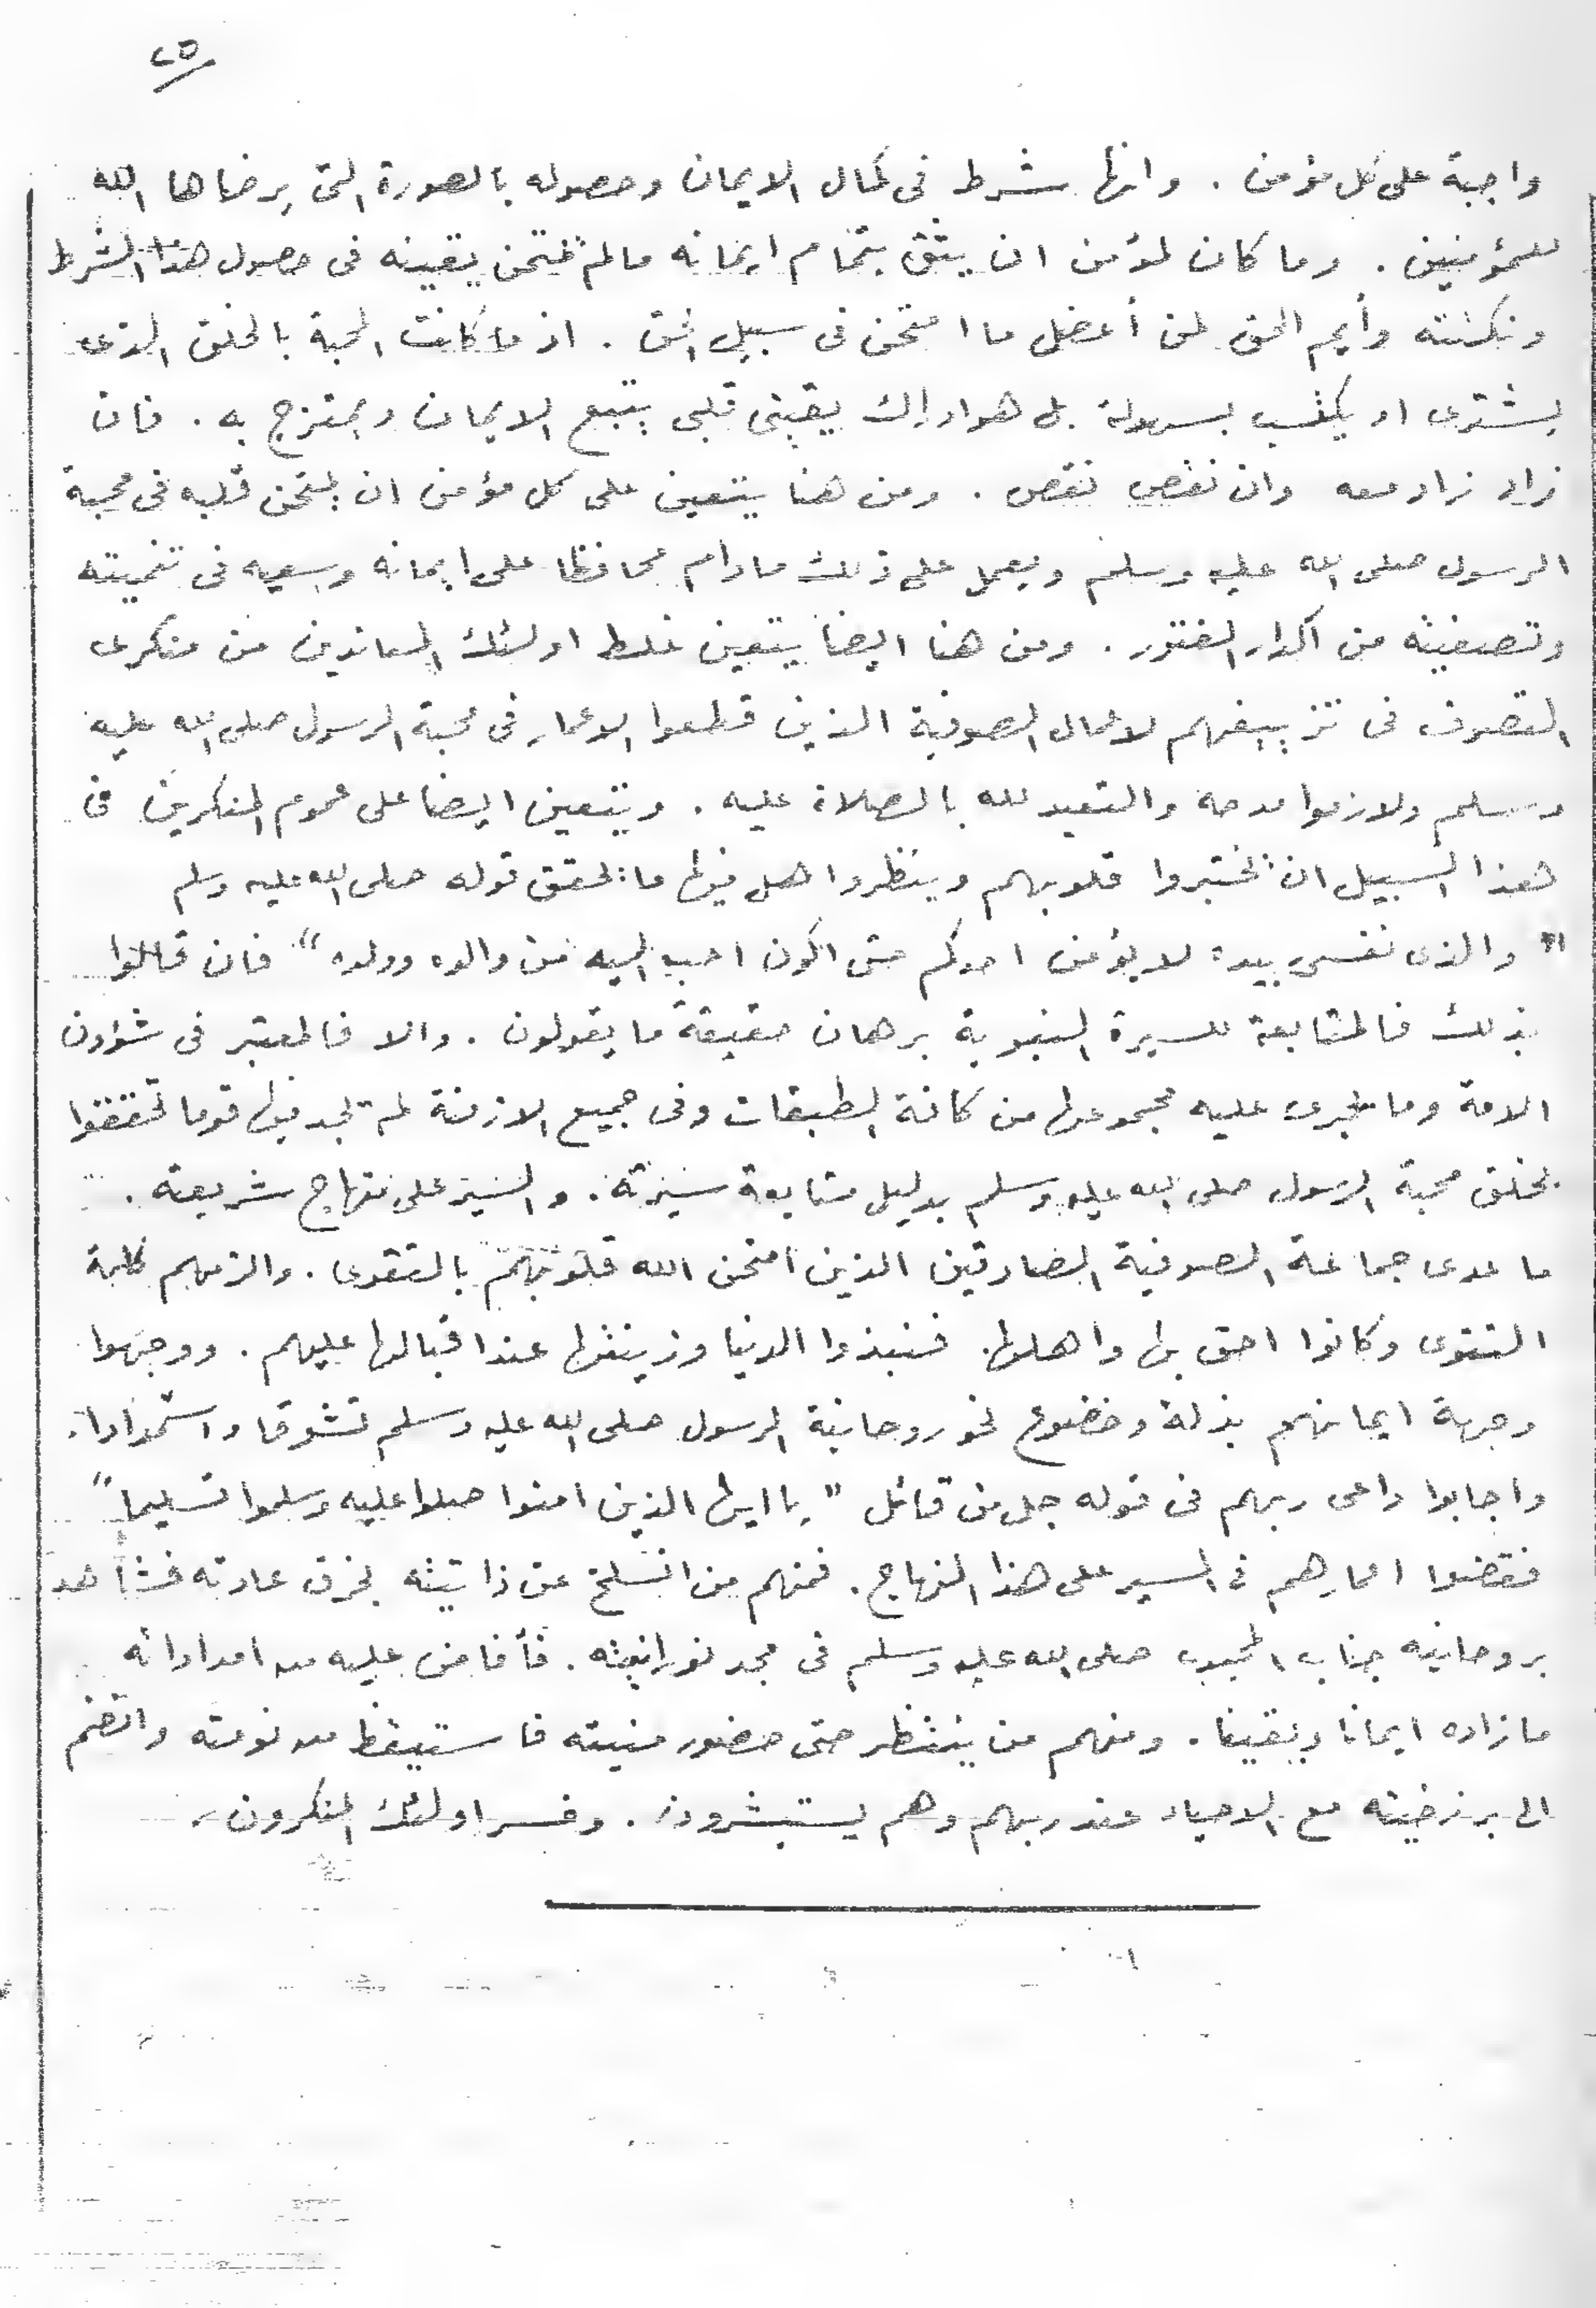 ٢٥
واجبة على كل مؤمن . وانها شرط فى كمال الايمان وحصوله بالصورة التى يرضاها الله
للمؤمنين . وما كان لمؤمن ان يثق بتمام ايمانه مالم يمتحن يقينه فى حصول هذا الشرط
ولكنه وأيم الحق لمن أعضل ما امتحن فى سبيل الحق . اذ ما كانت المحبة بالخلق الذى
يشترى او يكتسب بسهولة بل هو ادراك يقينى قلبى يتبع الايمان ويمتزج به . فان
زاد زاد معه وان نقص نقص . ومن هنا يتعين على كل مؤمن ان يمتحن قلبه فى محبة
الرسول صلى الله عليه وسلم ويعمل على ذلك مادام محافظا على ايمانه وسعيه فى تنميته
وتصفيته من اكدار الفتور . ومن هنا ايضا يتعين غلط اولئك المعاندين من منكرى
التصوف فى تزييفهم لاعمال الصوفية الذين قطعوا الاعمار فى محبة الرسول صلى الله عليه
وسلم ولازموا مدحه والتعبد لله بالصلاة عليه . ويتعين ايضا على عموم المنكرين فى
هذا السبيل ان يختبروا قلوبهم وينظروا هل فيها ما يحقق قوله صلى الله عليه وسلم
" والذى نفسى بيده لا يؤمن احدكم حتى اكون احب اليه من والده وولده " فان قالوا
بذلك فالمتابعة للسيرة النبوية برهان حقيقة ما يقولون . والا فالمعتبر فى شؤون
الامة وما يجرى عليه مجموعها من كافة الطبقات وفى جميع الازمنة لم يجد فيها قوما تحققوا
بخلق محبة الرسول صلى الله عليه وسلم بدليل متابعة سيرته . والسير على منهاج شريعته .
ما عدى جماعة الصوفية الصادقين الذين امتحن الله قلوبهم بالتقوى . والزمهم كلمة
التقوى وكانوا احق بها واهلها . فنبذوا الدنيا وزينتها عند اقبالها عليهم . ووجهوا
وجهة ايمانهم بذلة وخضوع نحو روحانية الرسول صلى الله عليه وسلم تشوقا واستمدادا .
واجابوا داعى ربهم فى قوله جل من قائل " يا ايها الذين امنوا صلوا عليه وسلموا تسليما "
فقضوا اعمارهم فى السير على هذا المنهاج . فمنهم من انسلخ عن ذاتيته بخرق عادته فشاهد
بروحانيته جناب المحبوب صلى الله عليه وسلم فى مجد نورانيته . فأفاض عليه من امداداته
ما زاده ايمانا ويقينا . ومنهم من ينتظر حتى حضور منيته فاستيقظ من نومته وانضم
الى برزخيته مع الاحياء عند ربهم وهم يستبشرون . وخسر اولئك المنكرون